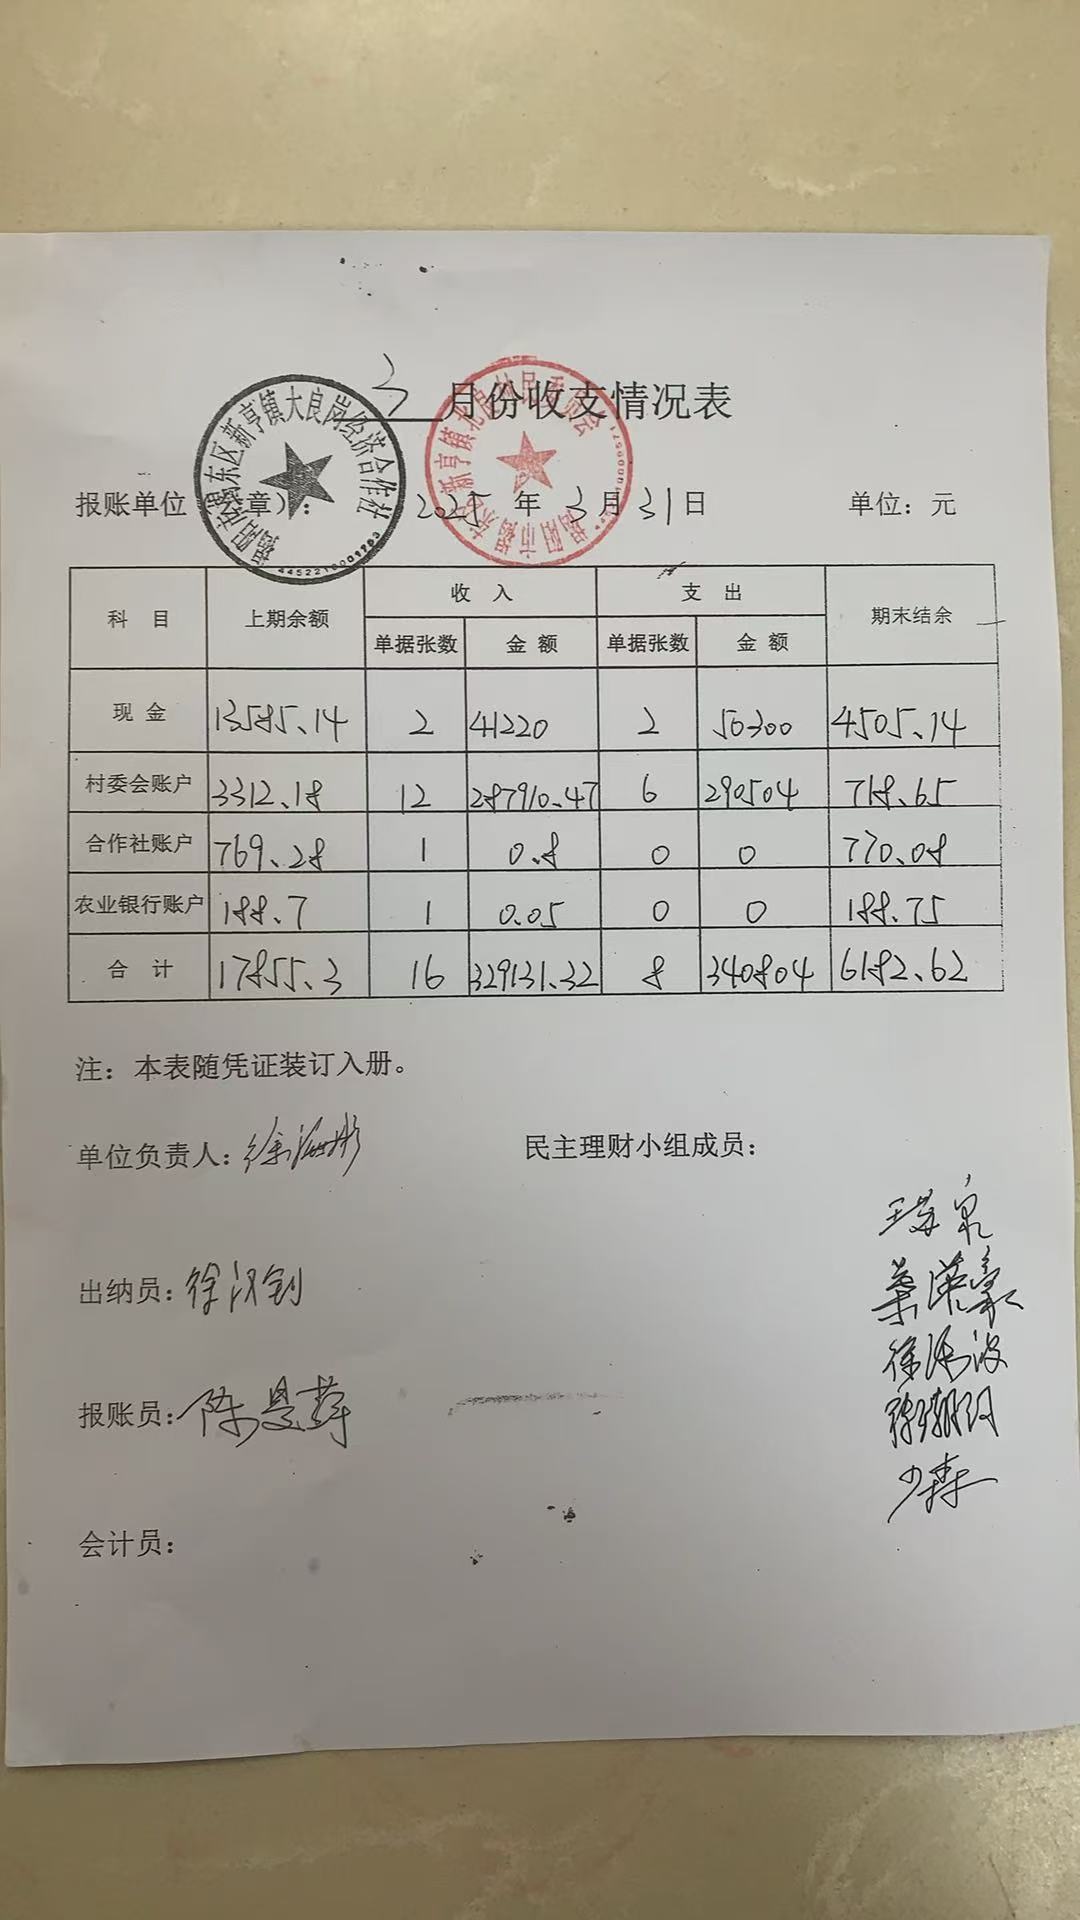 3月份收支情况表
揭阳市揭东区新亨镇大良岗经济合作社
4452210001703
揭阳市揭东区新亨镇北良村民委员会
报账单位（盖章）： 2025年3月31日 单位：元
科 目 上期余额 收 入 支 出 期末结余
单据张数 金 额 单据张数 金 额
现 金 13585.14 2 41220 2 50300 4505.14
村委会账户 3312.18 12 287910.47 6 290504 718.65
合作社账户 769.28 1 0.8 0 0 770.08
农业银行账户 188.7 1 0.05 0 0 188.75
合 计 17855.3 16 329131.32 8 340804 6182.62
注：本表随凭证装订入册。
单位负责人： 民主理财小组成员：
出纳员：徐汉钊
报账员：陈
会计员：